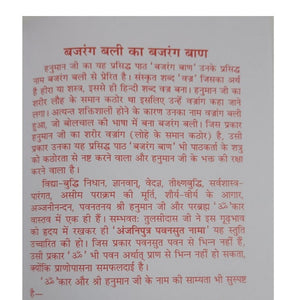 बजरंग बली का बजरंग बाण
हनुमान जी का यह प्रसिद्ध पाठ 'बजरंग बाण' उनके प्रसिद्ध
नाम बजरंग बली से प्रेरित है। संस्कृत शब्द 'वज्र' जिसका अर्थ
है हीरा या शस्त्र, इससे ही हिन्दी शब्द वज्र बना। हनुमान जी का
शरीर लौह के समान कठोर था इसलिए उन्हें वज्रांग कहा जाने
लगा। अत्यन्त शक्तिशाली होने के कारण उनका नाम वज्रांग बली
हुआ, जो बोलचाल की भाषा में बजरंग बली बना। जिस प्रकार
हनुमान जी का शरीर वज्रांग (लोहे के समान कठोर) है, उसी
प्रकार उनका यह प्रसिद्ध पाठ 'बजरंग बाण' भी पाठकर्ता के शत्रु
को कठोरता से नष्ट करने वाला और हनुमान जी के भक्त की रक्षा
करने वाला है।
विद्या-बुद्धि निधान, ज्ञानवान्, वेदज्ञ, तीक्ष्णबुद्धि, सर्वशास्त्र-
पारंगत, असीम पराक्रम की मूर्ति, शौर्य-वीर्य के आगार,
अञ्जनीनन्दन, पवनतनय श्री हनुमान जी और परब्रह्म 'ॐ'कार
वास्तव में एक ही हैं। सम्भवतः तुलसीदास जी ने इस गूढ़भाव
को हृदय में रखकर ही 'अंजनिपुत्र पवनसुत नामा' यह स्तुति
उच्चारित की हो। जिस प्रकार पवनसुत पवन से भिन्न नहीं हैं,
उसी प्रकार 'ॐ' भी पवन अर्थात् प्राण से भिन्न नहीं हो सकता,
क्योंकि प्राणोपासना समफलदाई है।
'ॐ'कार और श्री हनुमान जी के नाम की साम्यता भी सुस्पष्ट
है—